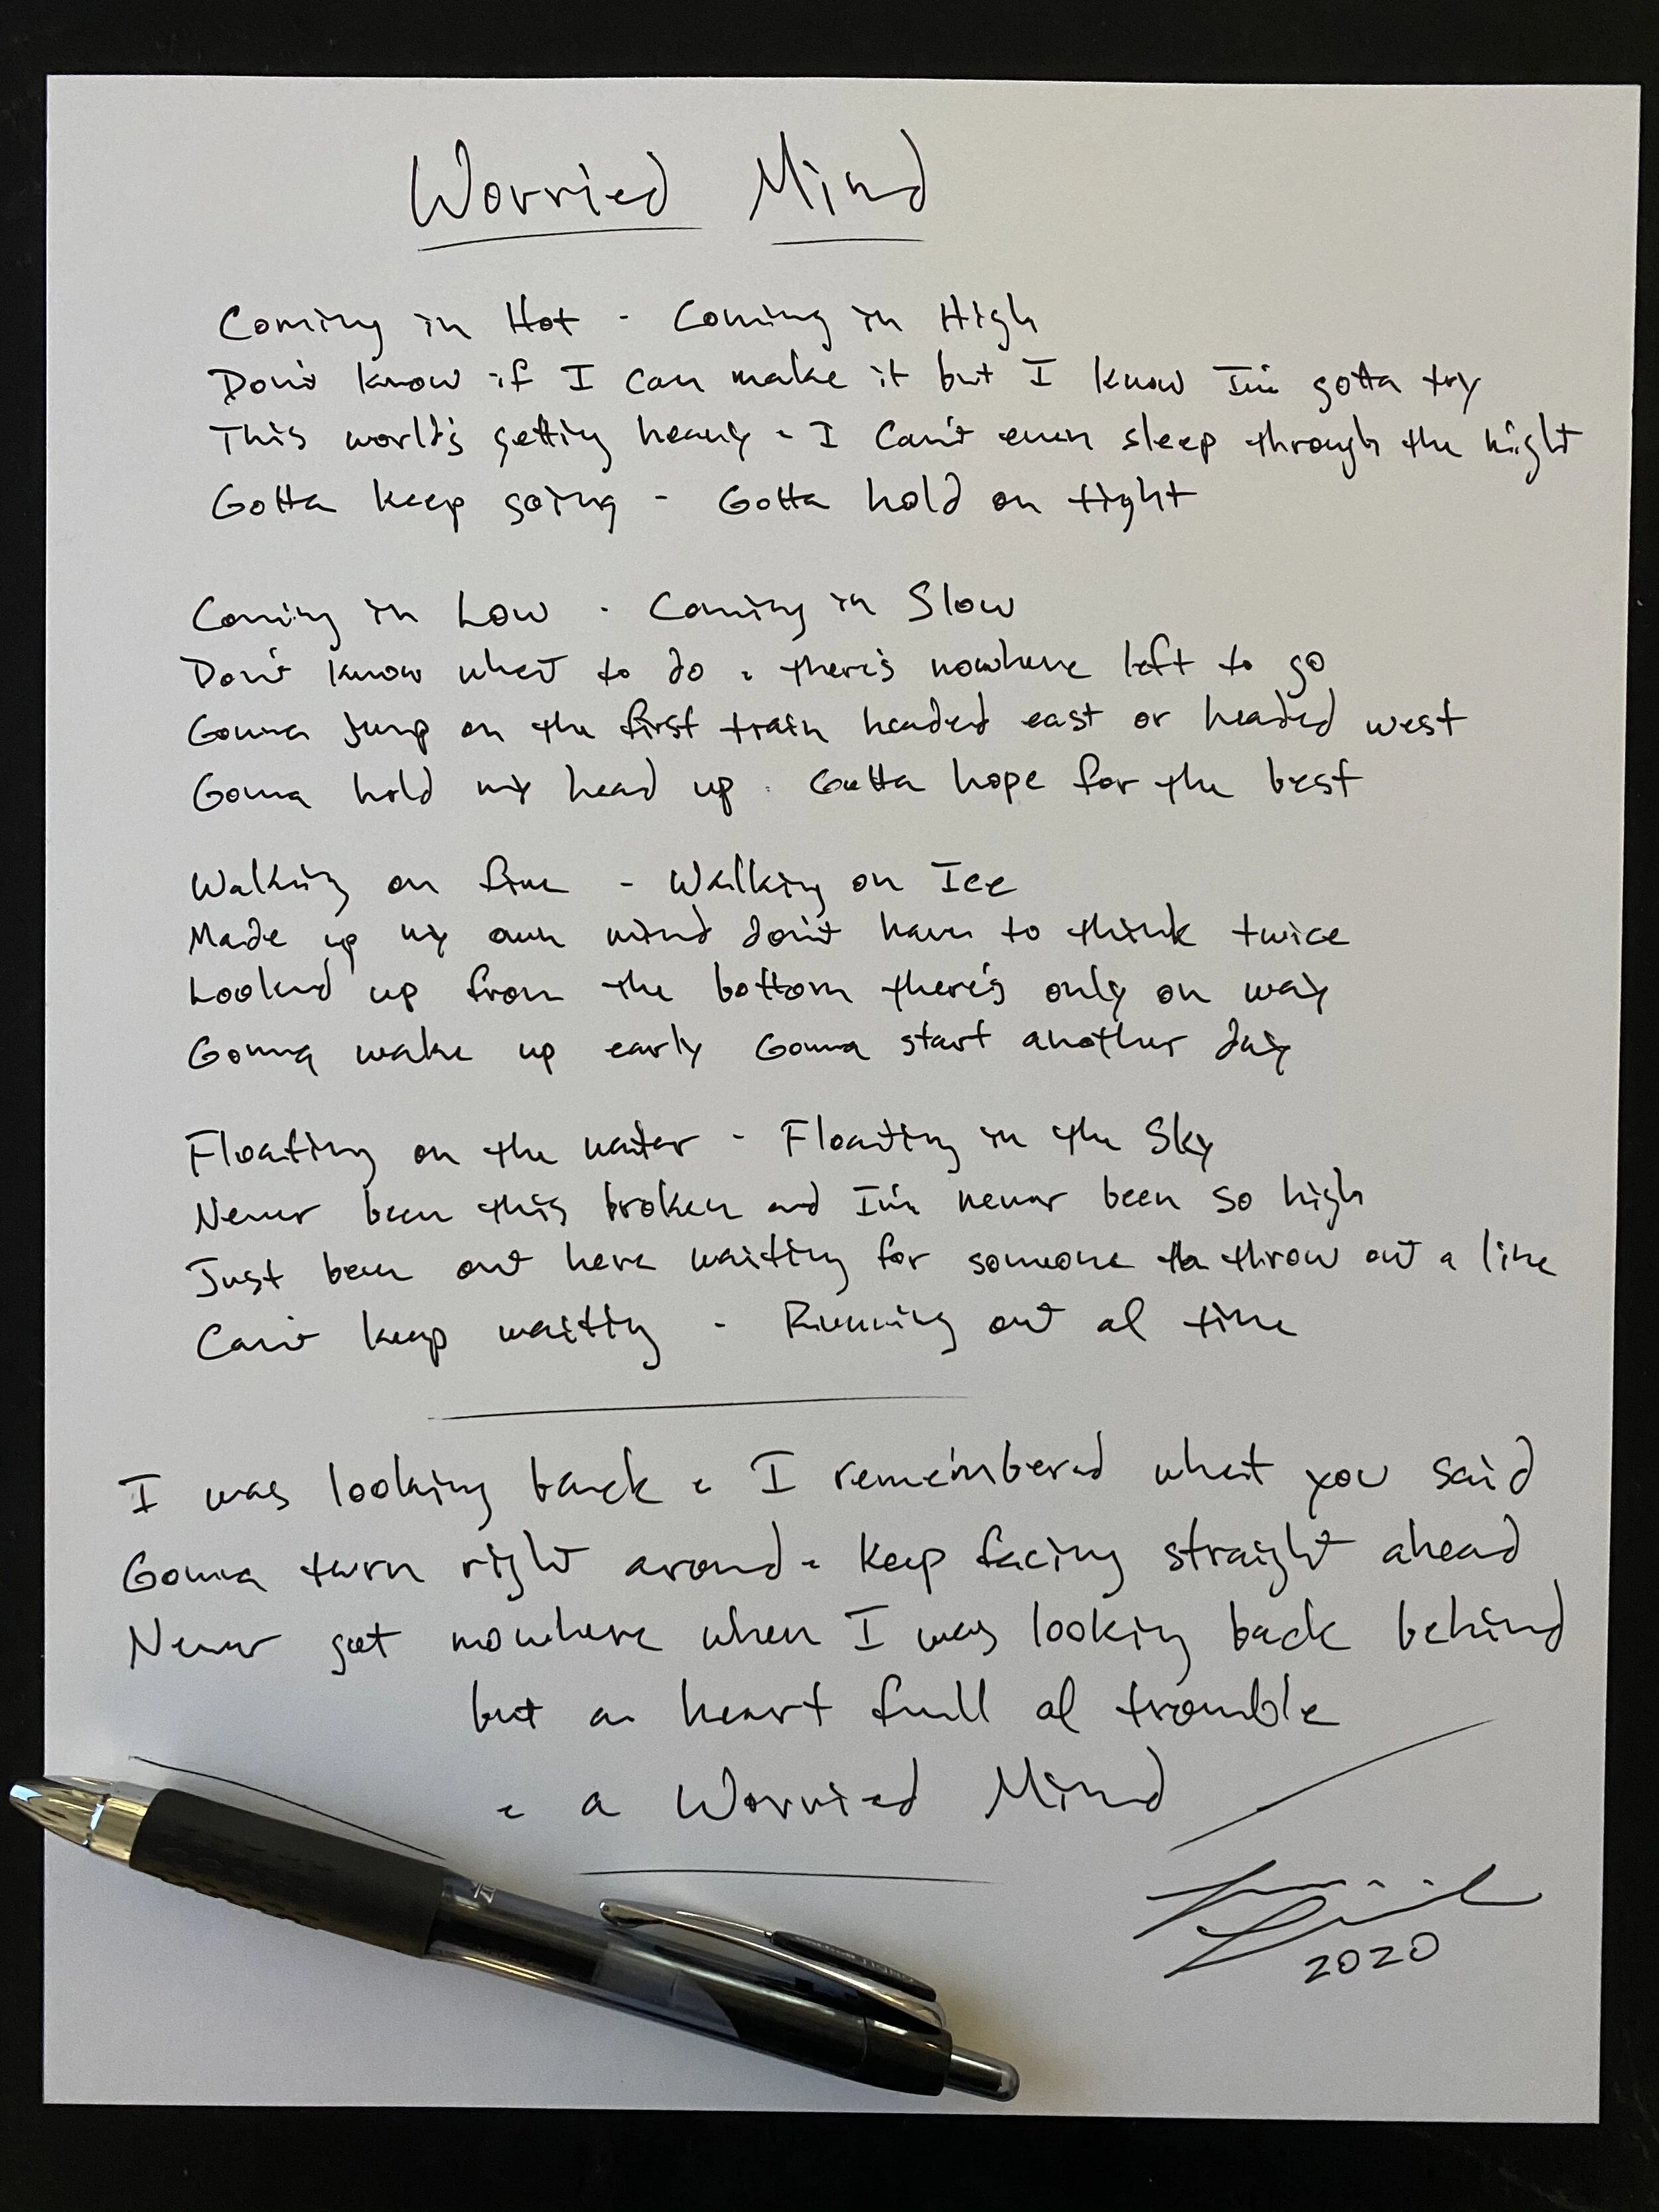 Worried Mind
Coming in Hot - Coming in High
Don't know if I can make it but I know I'm gotta try
This world's getting heavy - I Can't even sleep through the night
Gotta keep going - Gotta hold on tight
Coming in Low - Coming in Slow
Don't know what to do - there's nowhere left to go
Gonna jump on the first train headed east or headed west
Gonna hold my head up - Gotta hope for the best
Walking on fire - Walking on Ice
Made up my own mind don't have to think twice
Looked up from the bottom there's only on way
Gonna wake up early Gonna start another day
Floating on the water - Floating in the Sky
Never been this broken and I'm never been so high
Just been out here waiting for someone to throw out a line
Can't keep waiting - Running out of time
I was looking back - I remembered what you said
Gonna turn right around - Keep facing straight ahead
Never got nowhere when I was looking back behind
but a heart full of trouble
- a Worried Mind
2020